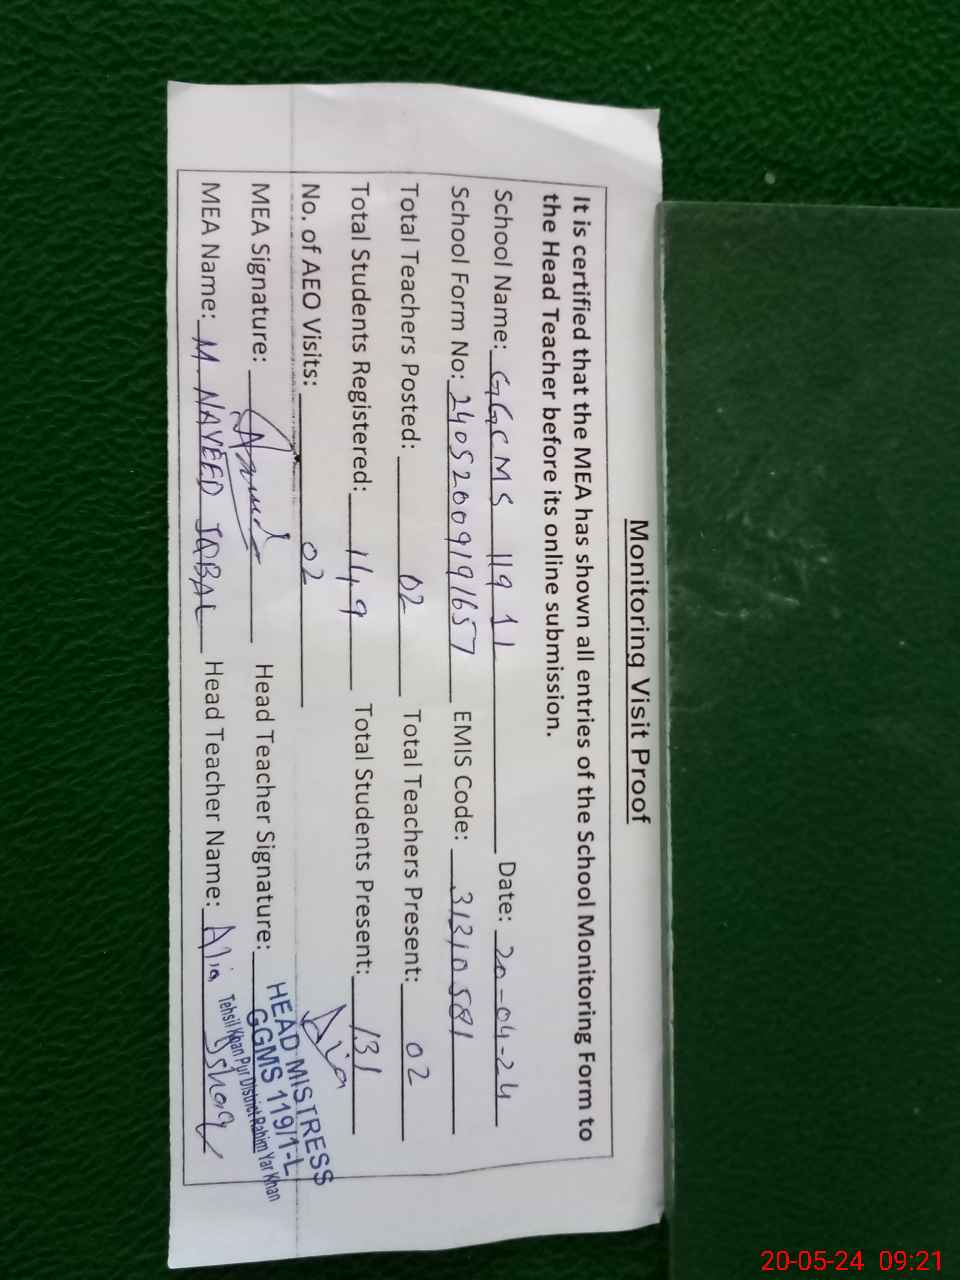 Monitoring Visit Proof
It is certified that the MEA has shown all entries of the School Monitoring Form to
the Head Teacher before its online submission.
School Name: GGCMS 119 1L Date: 20-04-24
School Form No: 24052009191657 EMIS Code: 31310581
Total Teachers Posted: 02 Total Teachers Present: 02
Total Students Registered: 149 Total Students Present: 131
No. of AEO Visits: 02
MEA Signature: Head Teacher Signature: Alia
HEAD MISTRESS
GGMS 119/1-L
Tehsil Khan Pur District Rahim Yar Khan
MEA Name: M NAVEED IQBAL Head Teacher Name: Alia Ishaq
20-05-24 09:21